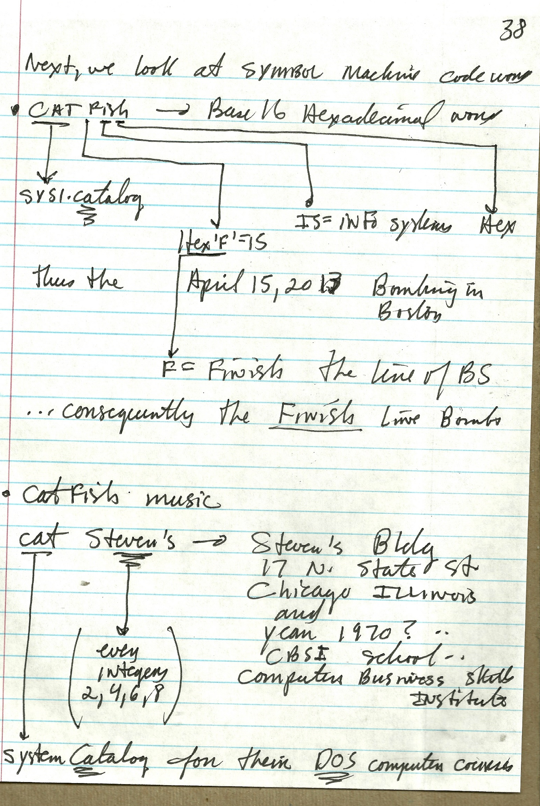 38
Next, we look at symbol machine code word
• CAT Fish → Base 16 Hexadecimal word
SYS1.catalog
IS = info systems Hex
Hex 'F' = 15
thus the April 15, 2013 Bombing in
Boston
F = Finish the line of BS
... consequently the Finish Line Bombs
• CatFish music
cat Steven's → Steven's Bldg
17 N. State St
Chicago Illinois
and
year 1970? ..
(even CBSI school..
integers Computer Business Skills
2, 4, 6, 8) Institute
System Catalog for them DOS computer courses